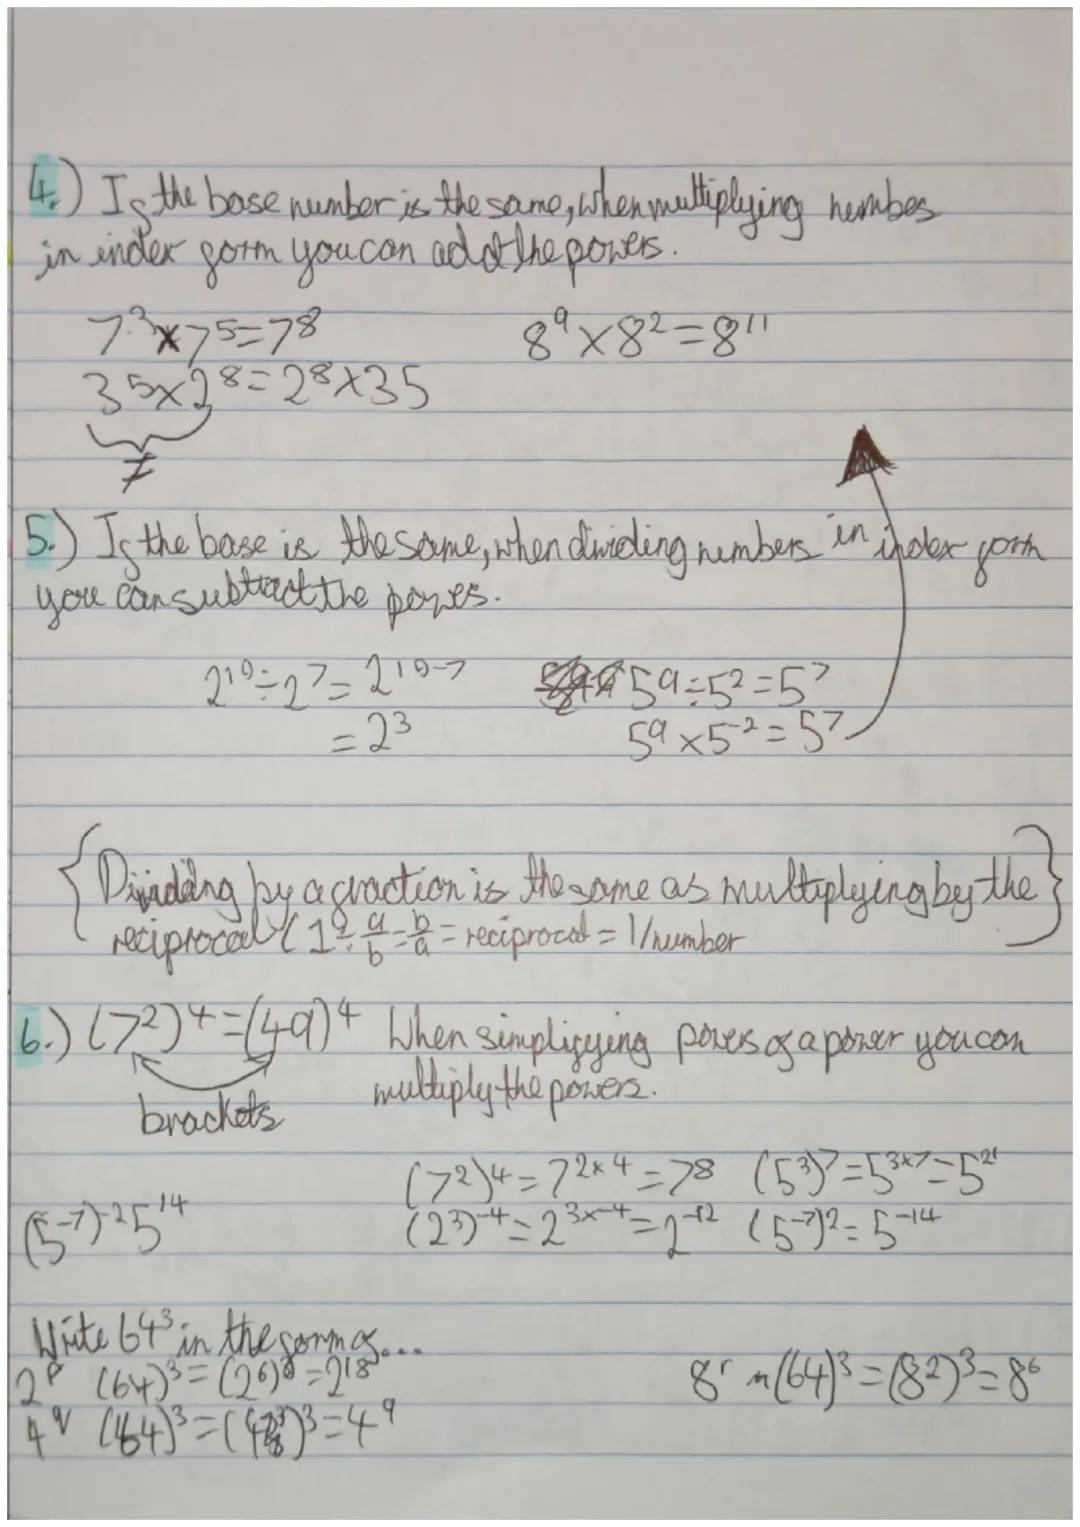 4.) If the base number is the same, when multiplying numbes
in index form you can add the powers.
7³ × 7⁵ = 7⁸ 8⁹ × 8² = 8¹¹
3⁵ × 2⁸ = 2⁸ × 3⁵
≠
5.) If the base is the same, when dividing numbers in index form
you can subtract the powes.
2¹⁰ ÷ 2⁷ = 2¹⁰⁻⁷ 5⁹ ÷ 5² = 5⁷
= 2³ 5⁹ × 5⁻² = 5⁷
{Dividing by a fraction is the same as multiplying by the}
reciprocal ( 1 ÷ a/b = b/a = reciprocal = 1/number
6.) (7²)⁴ = (49)⁴ When simplifying powers of a power you can
brackets multiply the powers.
(7²)⁴ = 7²ˣ⁴ = 7⁸ (5³)⁷ = 5³ˣ⁷ = 5²¹
(5⁻⁷)⁻² 5¹⁴ (2³)⁻⁴ = 2³ˣ⁻⁴ = 2⁻¹² (5⁻⁷)² = 5⁻¹⁴
Write 64³ in the form of...
2ᵖ (64)³ = (2⁶)³ = 2¹⁸ 8ʳ (64)³ = (8²)³ = 8⁶
4^q (64)³ = (4³)³ = 4⁹